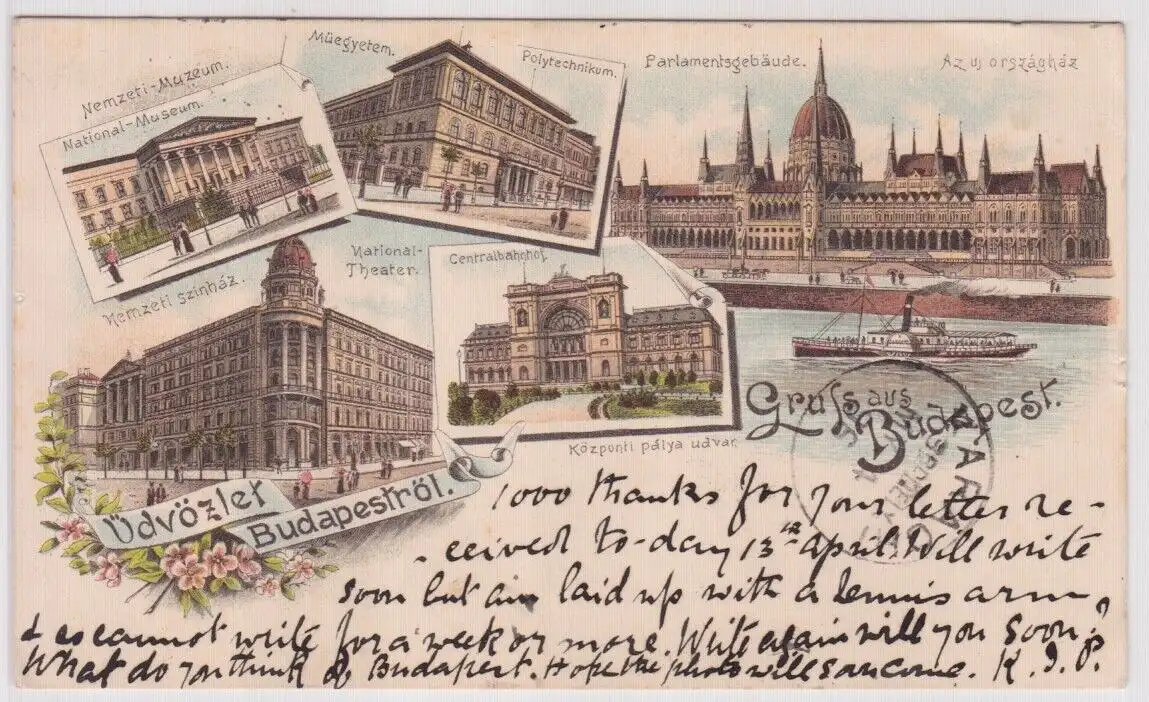 Nemzeti-Muzeum.
National-Museum.
Müegyetem.
Polytechnikum.
Parlamentsgebäude.
Az uj országház
Nemzeti szinház.
National-
Theater.
Centralbahnhof.
Központi pálya udvar.
Gruss aus
Budapest.
Üdvözlet
Budapestről.
1000 thanks for your letter re-
-ceived to-day 13th April. Will write
soon but am laid up with a tennis arm,
& so cannot write for a week or more. Write again will you soon?
What do you think of Budapest. Hope the photo will soon come. K. J. P.